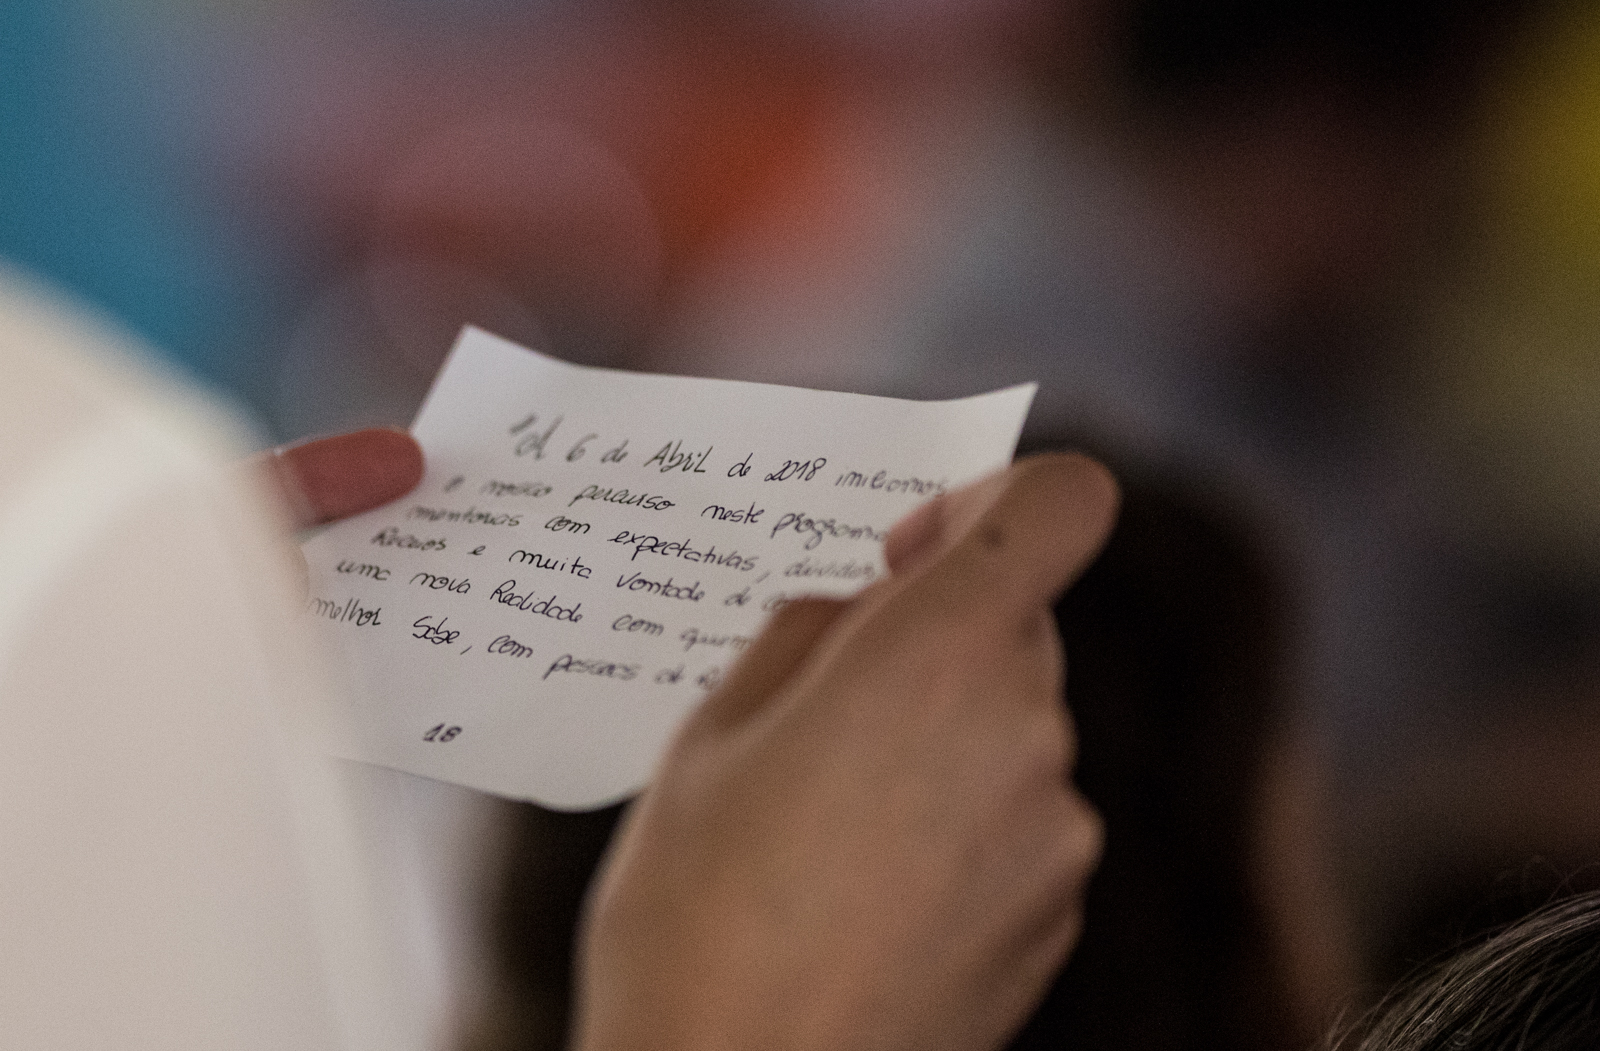 "A 6 de Abril de 2018 iniciamos
o nosso percurso neste programa
mentorias com expectativas, dúvidas
Receios e muita vontade de
uma nova Realidade com quem
melhor Sabe, com pessoas de
18